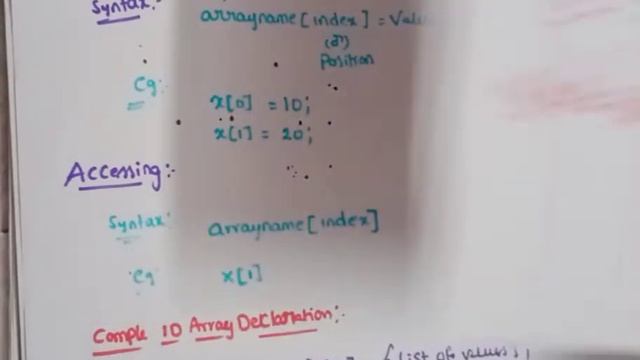 Syntax:-
arrayname[index] = Valu
(or)
Position
Eg:
x[0] = 10;
x[1] = 20;
Accessing:-
Syntax: arrayname[index]
Eg x[1]
Comple 1D Array Declaration:-
= {list of values};